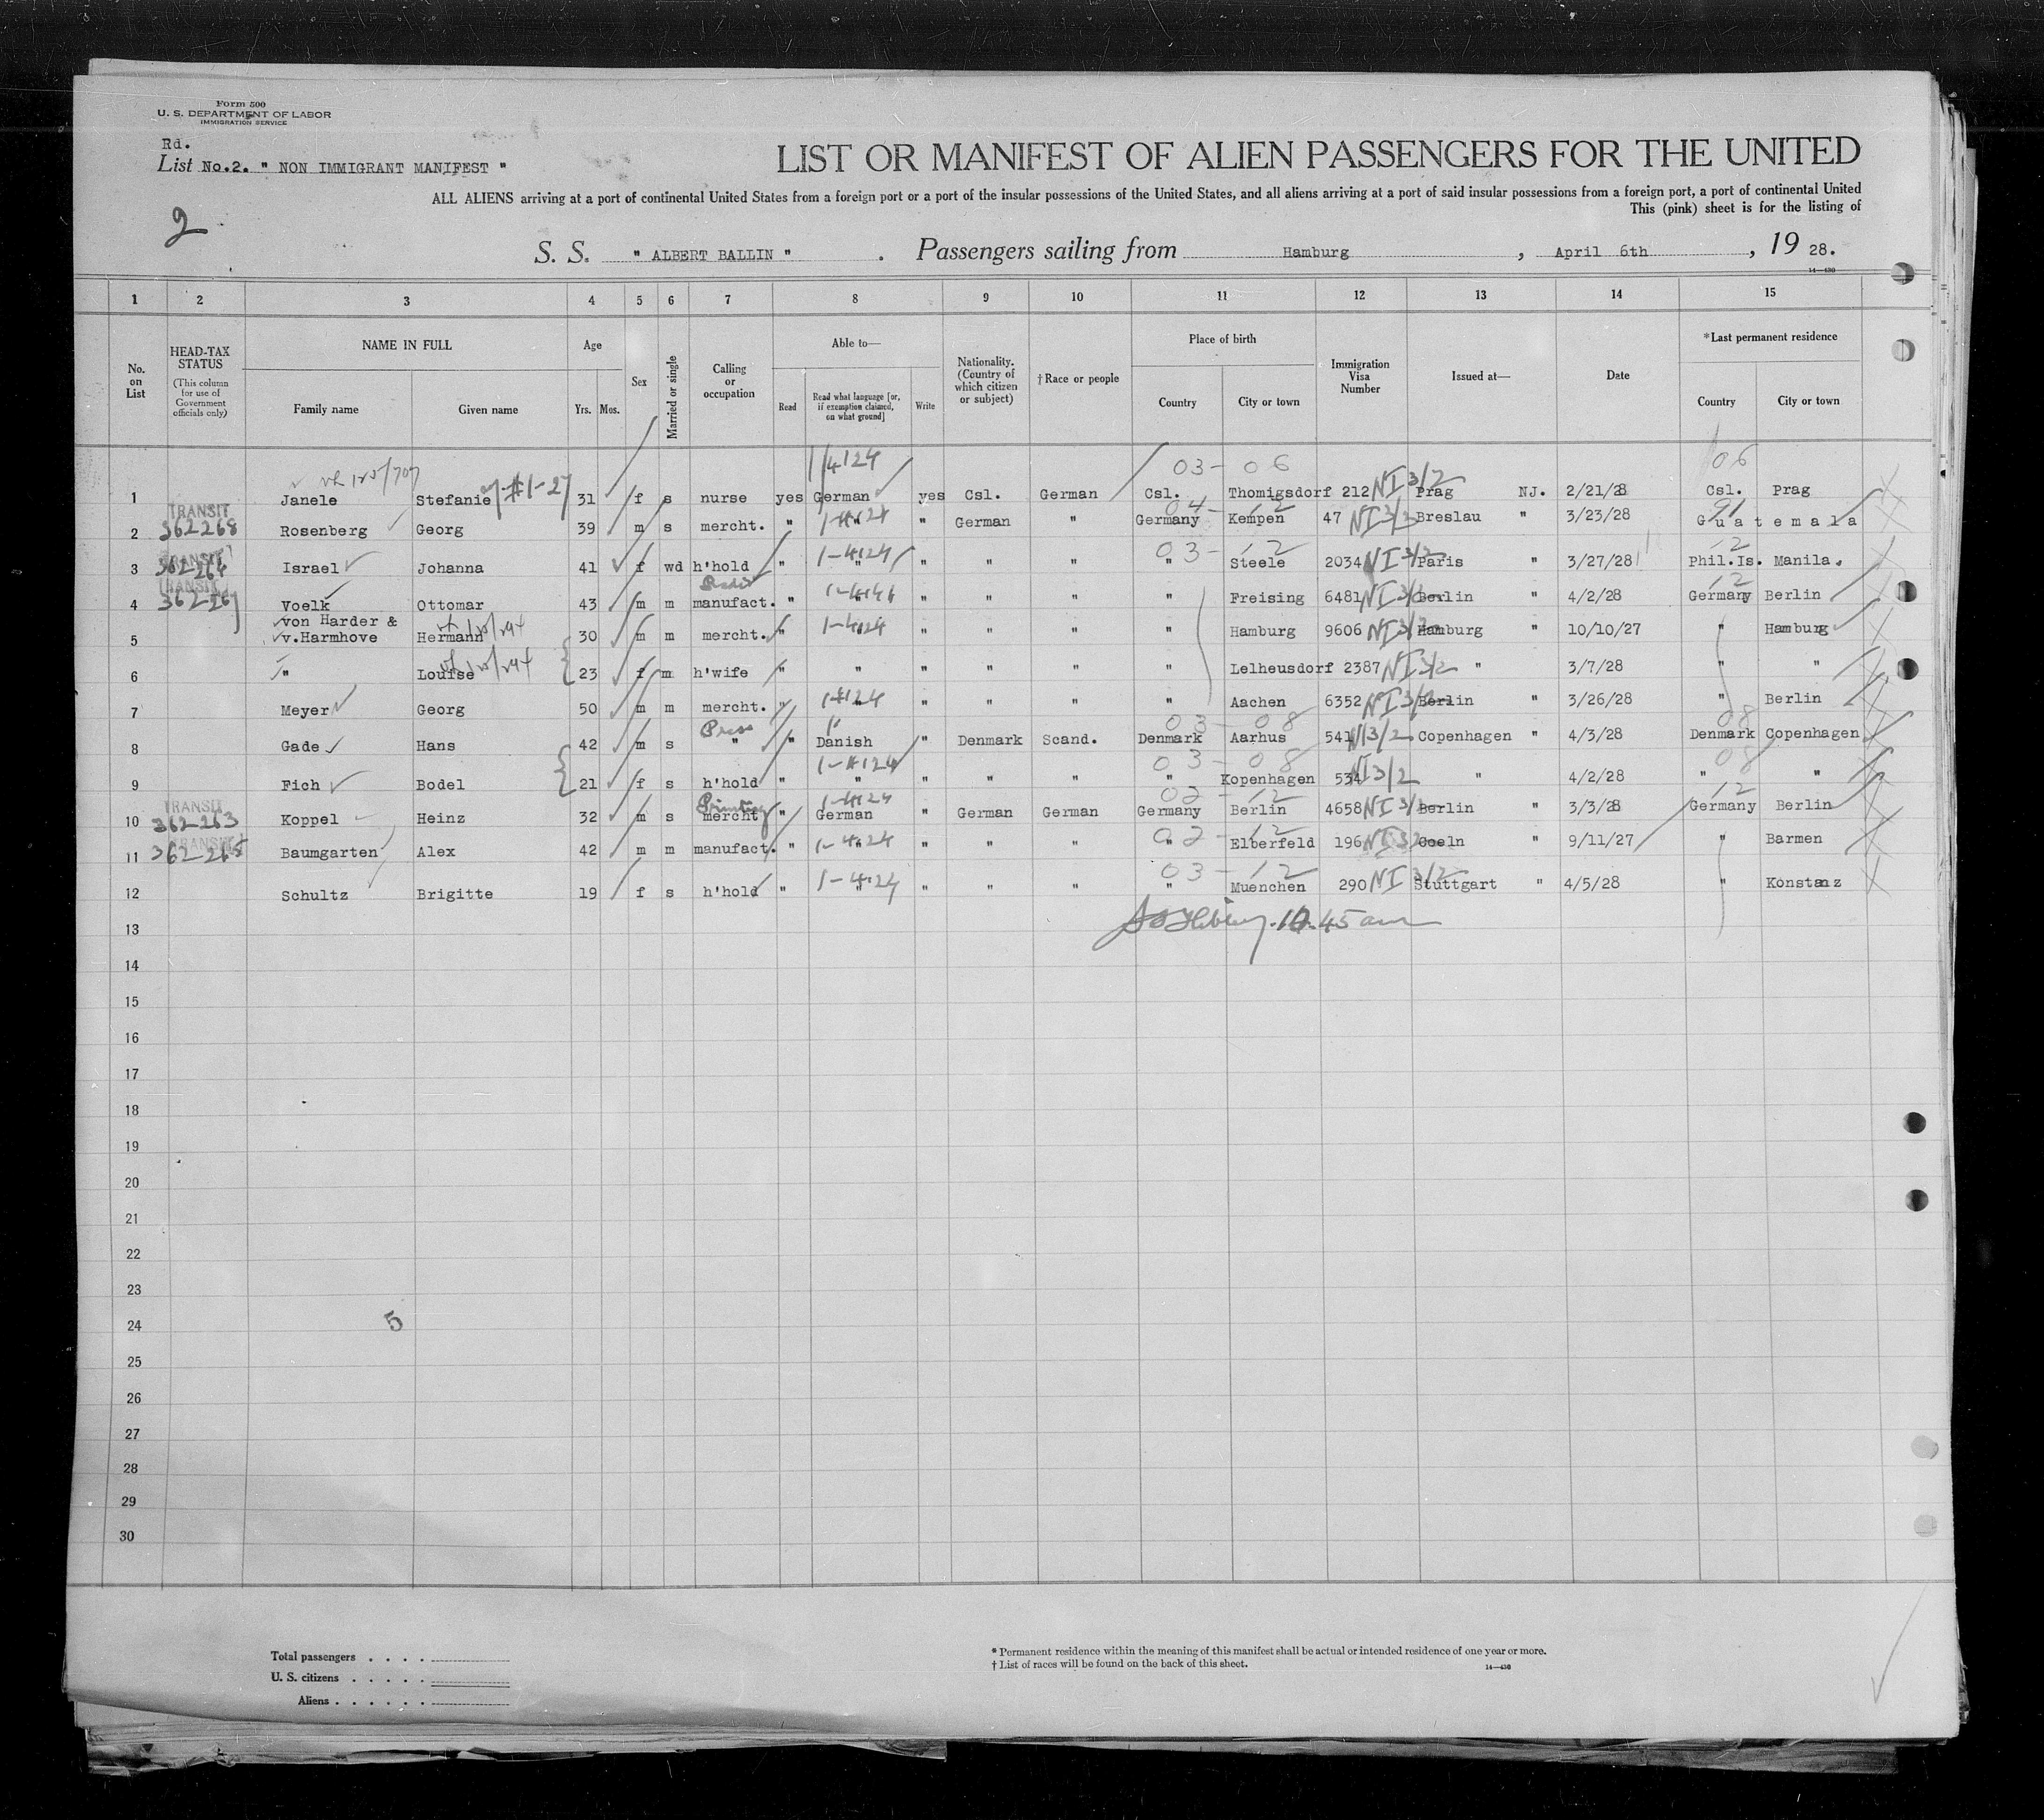 Form 500
U. S. DEPARTMENT OF LABOR
IMMIGRATION SERVICE
Rd.
List No.2. " NON IMMIGRANT MANIFEST "
LIST OR MANIFEST OF ALIEN PASSENGERS FOR THE UNITED
ALL ALIENS arriving at a port of continental United States from a foreign port or a port of the insular possessions of the United States, and all aliens arriving at a port of said insular possessions from a foreign port, a port of continental United
This (pink) sheet is for the listing of
2
S. S. " ALBERT BALLIN " . Passengers sailing from Hamburg , April 6th , 19 28.
14—430
1 2 3 4 5 6 7 8 9 10 11 12 13 14 15
No. on List
HEAD-TAX STATUS
(This column for use of Government officials only)
NAME IN FULL
Family name Given name
Age
Yrs. Mos.
Sex
Married or single
Calling or occupation
Able to—
Read Read what language [or, if exemption claimed, on what ground] Write
Nationality. (Country of which citizen or subject)
† Race or people
Place of birth
Country City or town
Immigration Visa Number
Issued at—
Date
* Last permanent residence
Country City or town
1/4124 03- 06 06
1 Janele Stefanie #1-27 31 f s nurse yes German yes Csl. German Csl. Thomigsdorf 212 NI 3/2 Prag NJ. 2/21/28 Csl. Prag
TRANSIT 04- 12 91
2 362268 Rosenberg Georg 39 m s mercht. " " " German " Germany Kempen 47 NI 3/3 Breslau " 3/23/28 Guatemala
TRANSIT 1-4124 03- 12 12
3 362264 Israel Johanna 41 f wd h'hold " " " " " " Steele 2034 NI 3/2 Paris " 3/27/28 Phil.Is. Manila.
TRANSIT 12
4 Voelk Ottomar 43 m m manufact. " " " " " Freising 6481 NI 3/2 Berlin " 4/2/28 Germany Berlin
von Harder &
5 v.Harmhove Hermann 30 m m mercht. " 1-4124 " " " Hamburg 9606 NI 3/2 Hamburg " 10/10/27 " Hamburg
6 " Louise 23 f m h'wife " " " " " Lelheusdorf 2387 NI 3/2 " 3/7/28 " "
7 Meyer Georg 50 m m mercht. " " " " " Aachen 6352 NI 3/2 Berlin " 3/26/28 " Berlin
Press 03- 08 08
8 Gade Hans 42 m s " " Danish " Denmark Scand. Denmark Aarhus 541 NI 3/2 Copenhagen " 4/3/28 Denmark Copenhagen
03- 08 08
9 Fich Bodel 21 f s h'hold " " " " " " Kopenhagen 534 NI 3/2 " 4/2/28 " "
TRANSIT Printing 1-4124 02- 12 12
10 362263 Koppel Heinz 32 m s mercht " German " German German Germany Berlin 4658 NI 3/2 Berlin " 3/3/28 Germany Berlin
TRANSIT 02- 12
11 362265 Baumgarten Alex 42 m m manufact. " 1-4124 " " " " Elberfeld 196 NI 3/2 Coeln " 9/11/27 " Barmen
03- 12
12 Schultz Brigitte 19 f s h'hold " 1-4124 " " " " Muenchen 290 NI 3/2 Stuttgart " 4/5/28 " Konstanz
13 10.45 am
14
15
16
17
18
19
20
21
22
23
24
5
25
26
27
28
29
30
Total passengers . . . .
U. S. citizens . . . . .
Aliens . . . . . .
* Permanent residence within the meaning of this manifest shall be actual or intended residence of one year or more.
† List of races will be found on the back of this sheet.
14—430